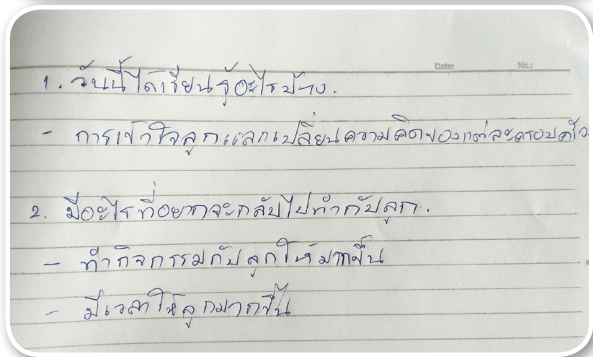 Date: No.:
1. วันนี้ได้เรียนรู้อะไรบ้าง.
- การเข้าใจลูกแลกเปลี่ยนความคิดของแต่ละครอบครัว
2. มีอะไรที่อยากจะกลับไปทำกับลูก.
- ทำกิจกรรมกับลูกให้มากขึ้น
- มีเวลาให้ลูกมากขึ้น